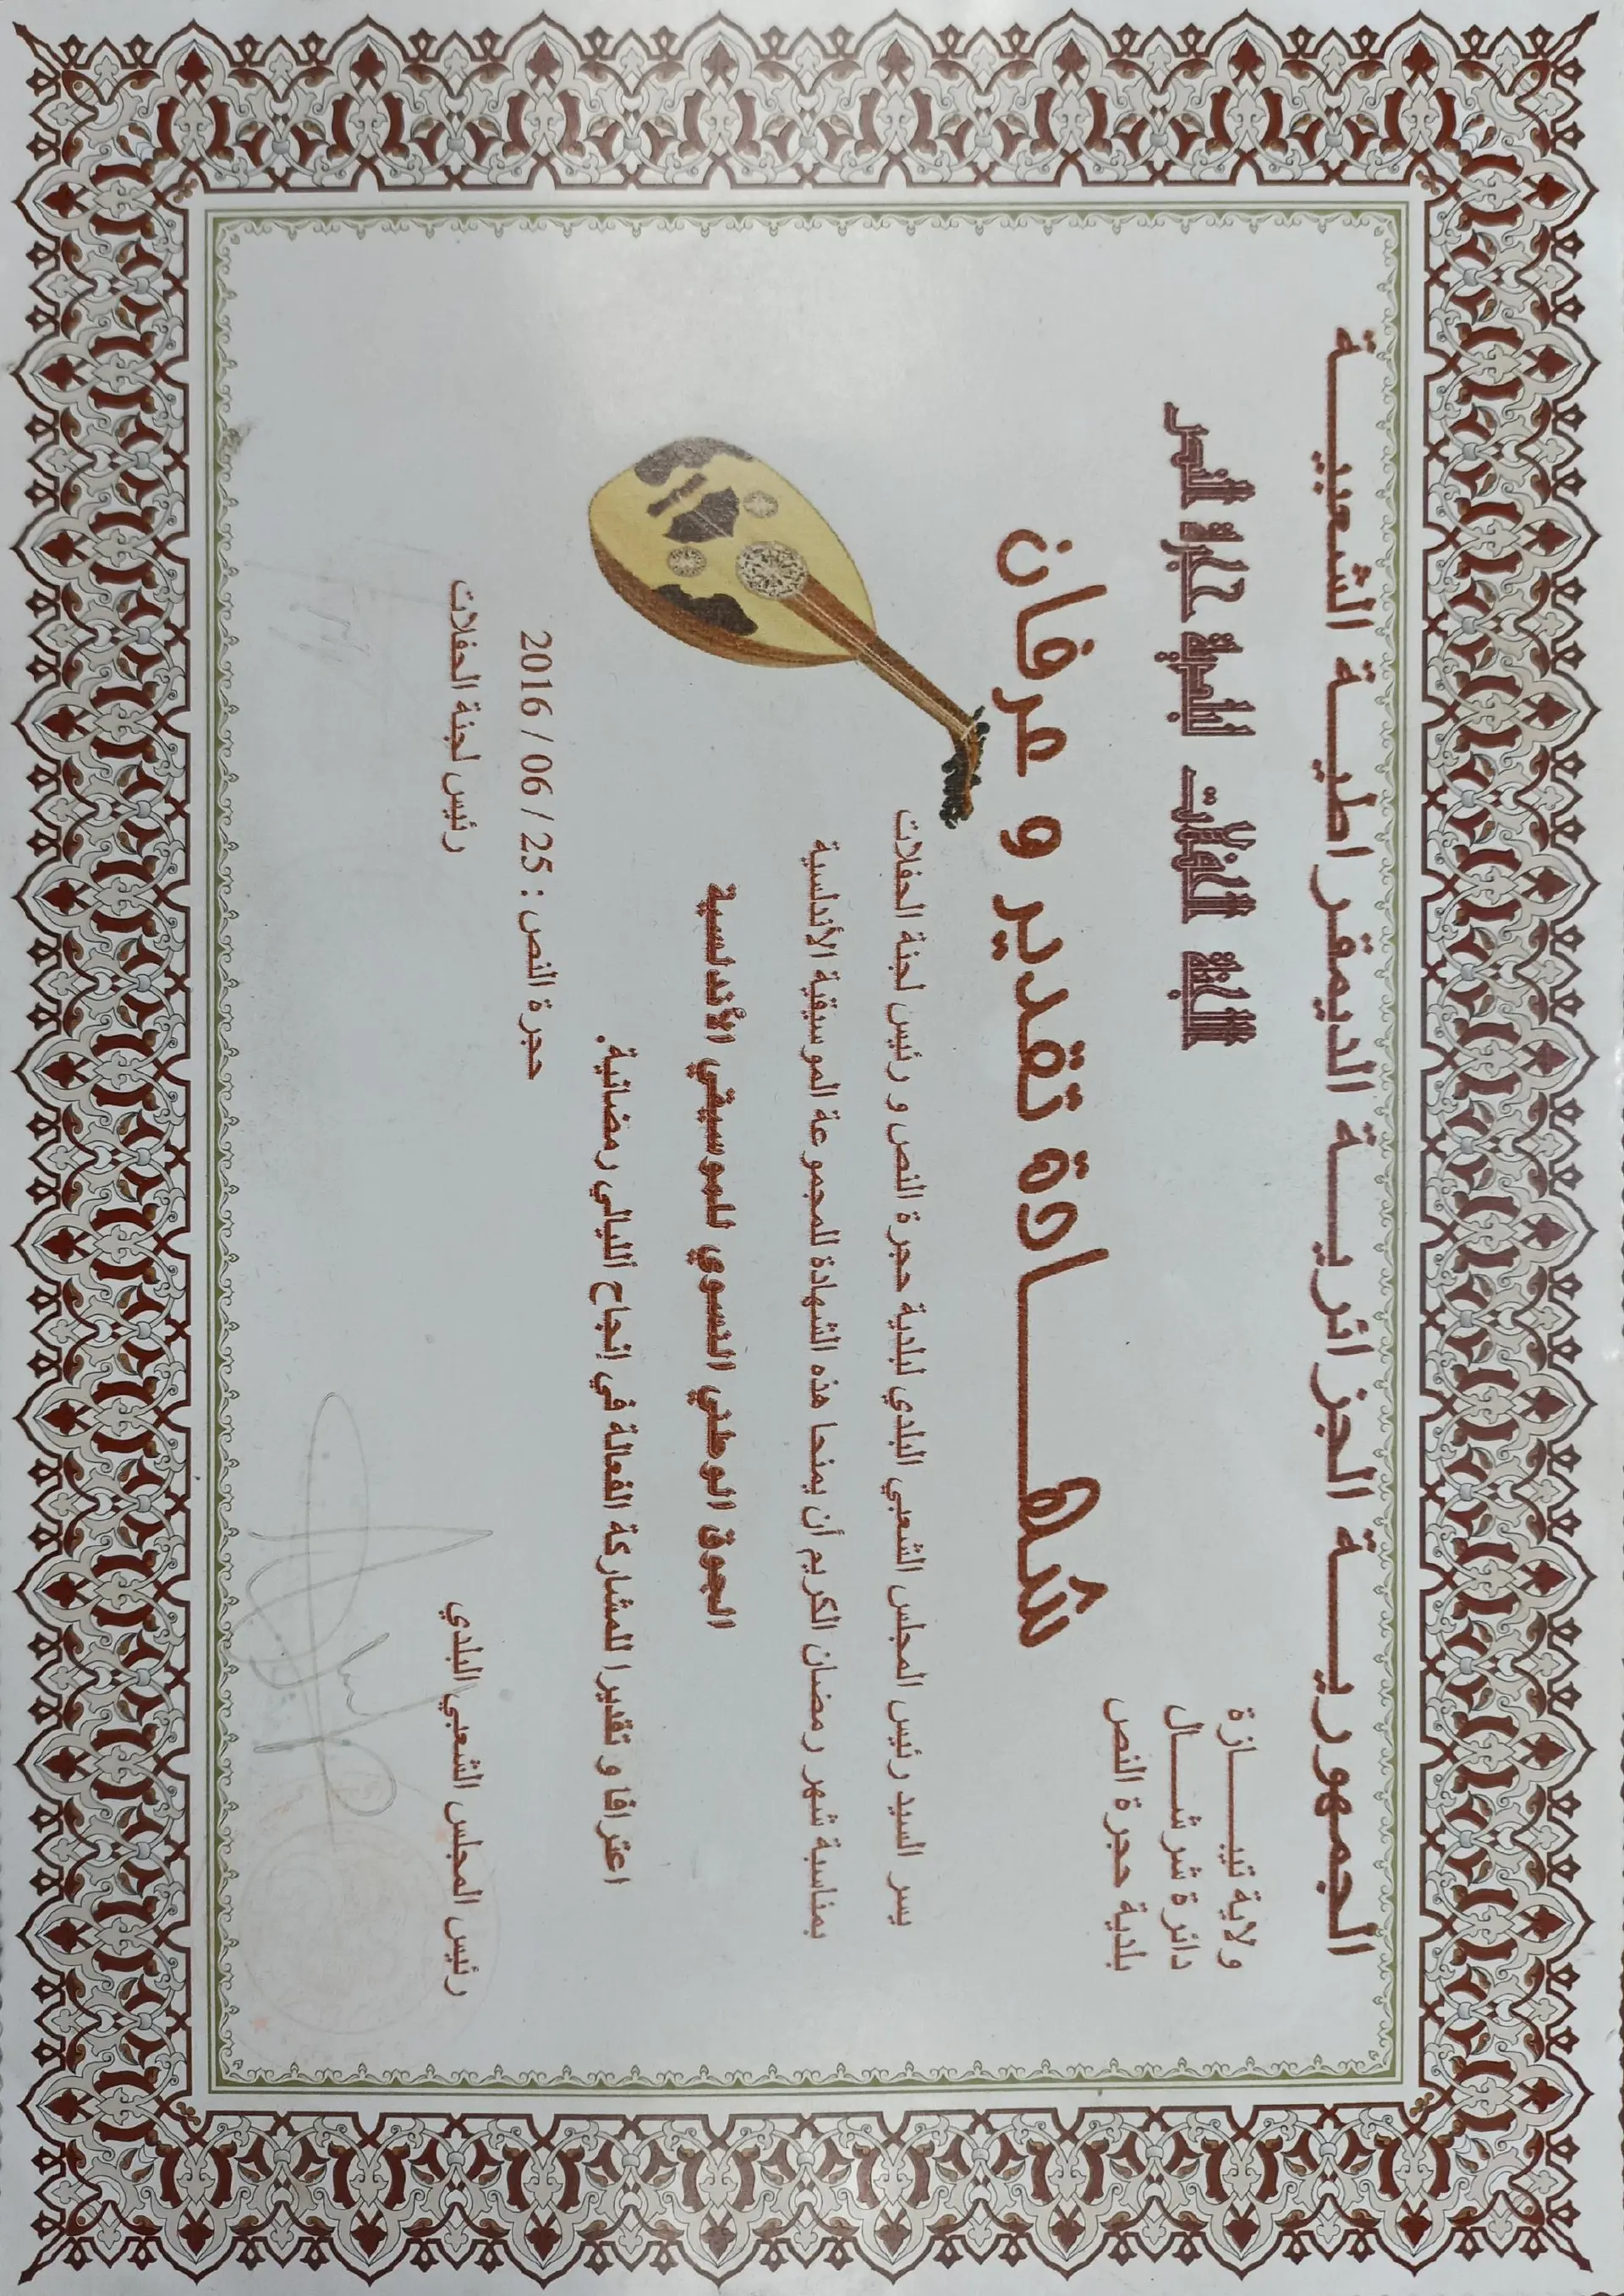 الجمهوريـــــة الجزائريـــــة الديمقراطيـــة الشعبيـــــة
ولاية تيبـــــــازة
دائرة شرشـــــال
بلدية حجرة النص
لجنة الحفلات لبلدية حجرة النص
شهـــــــادة تقدير و عرفان
يسر السيد رئيس المجلس الشعبي البلدي لبلدية حجرة النص و رئيس لجنة الحفلات
بمناسبة شهر رمضان الكريم أن يمنحا هذه الشهادة للمجموعة الموسيقية الأندلسية
الجوق الوطني النسوي للموسيقي الأندلسية
اعترافا و تقديرا للمشاركة الفعالة في إنجاح الليالي رمضانية.
حجرة النص : 25 / 06 / 2016
رئيس المجلس الشعبي البلدي
رئيس لجنة الحفلات